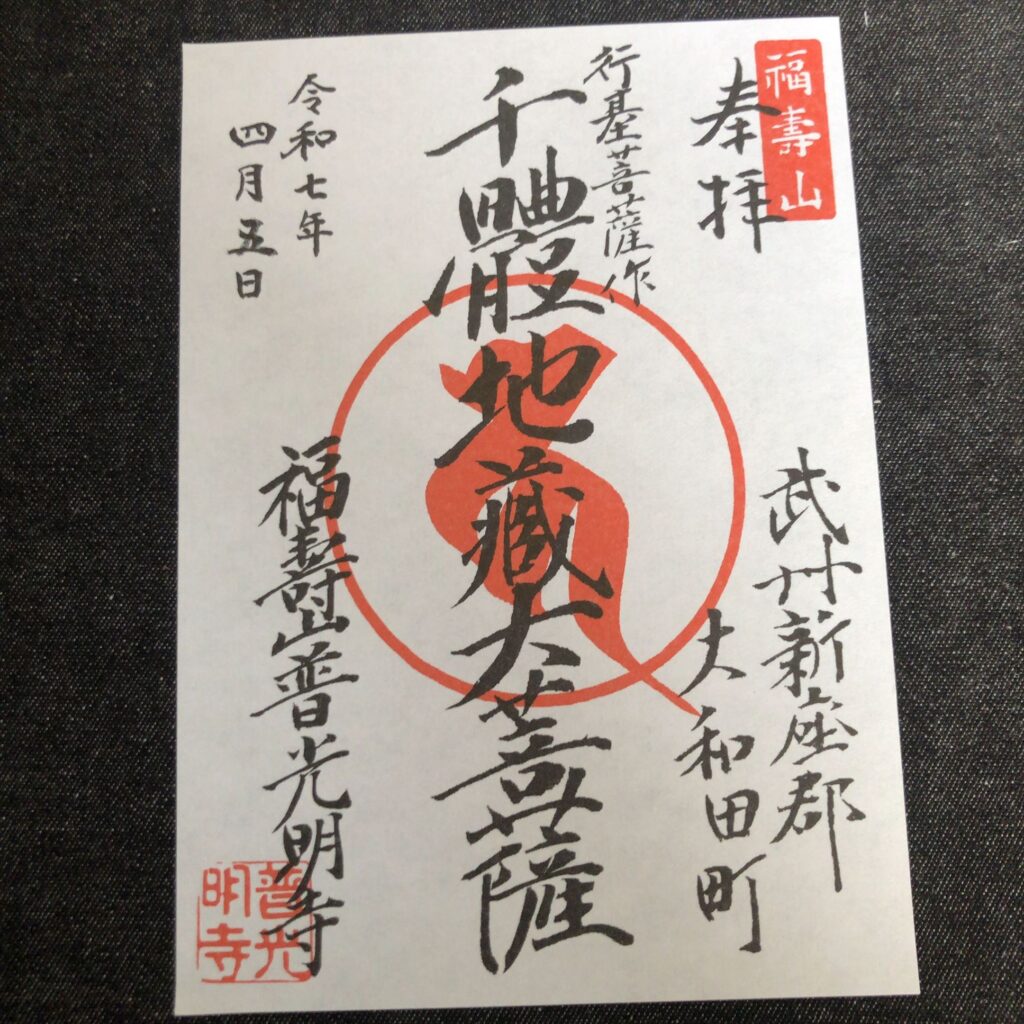 福壽山
奉拝
武州新座郡
大和田町
行基菩薩作
千體地蔵大菩薩
令和七年
四月五日
福壽山普光明寺
普光
明寺